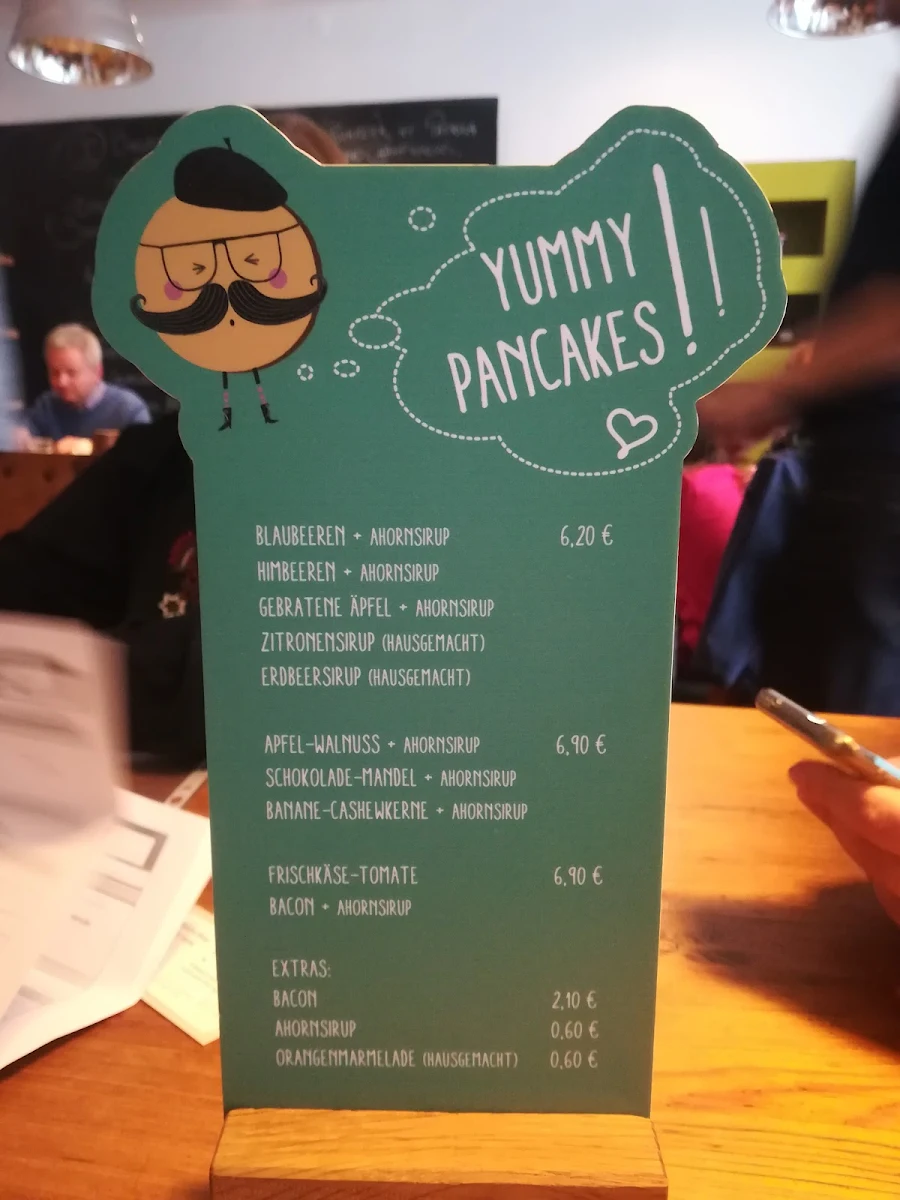 YUMMY
PANCAKES!!
BLAUBEEREN + AHORNSIRUP 6,20 €
HIMBEEREN + AHORNSIRUP
GEBRATENE ÄPFEL + AHORNSIRUP
ZITRONENSIRUP (HAUSGEMACHT)
ERDBEERSIRUP (HAUSGEMACHT)
APFEL-WALNUSS + AHORNSIRUP 6,90 €
SCHOKOLADE-MANDEL + AHORNSIRUP
BANANE-CASHEWKERNE + AHORNSIRUP
FRISCHKÄSE-TOMATE 6,90 €
BACON + AHORNSIRUP
EXTRAS:
BACON 2,10 €
AHORNSIRUP 0,60 €
ORANGENMARMELADE (HAUSGEMACHT) 0,60 €